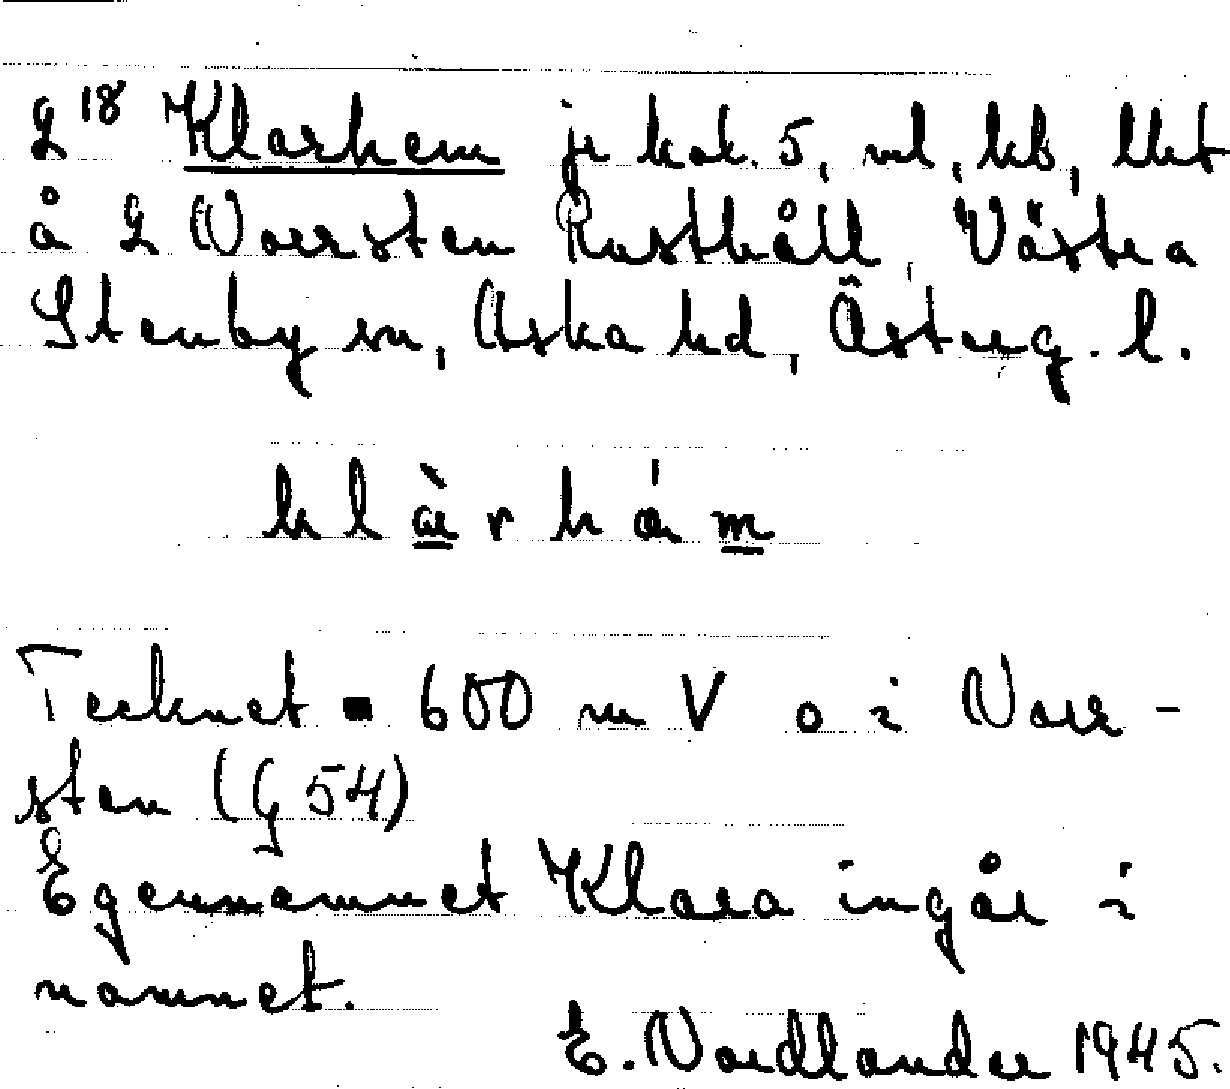 L¹⁸ Klarhem je kok. 5, vl, kb, lht
å L Norrsten Rusthåll, Västra
Stenby sn, Aska hd, Österg. l.
klàrhám
Tecknet ▪ 600 m V o i Norr-
sten (G 54)
Egennamnet Klara ingår i
namnet.
E. Nordlander 1945.